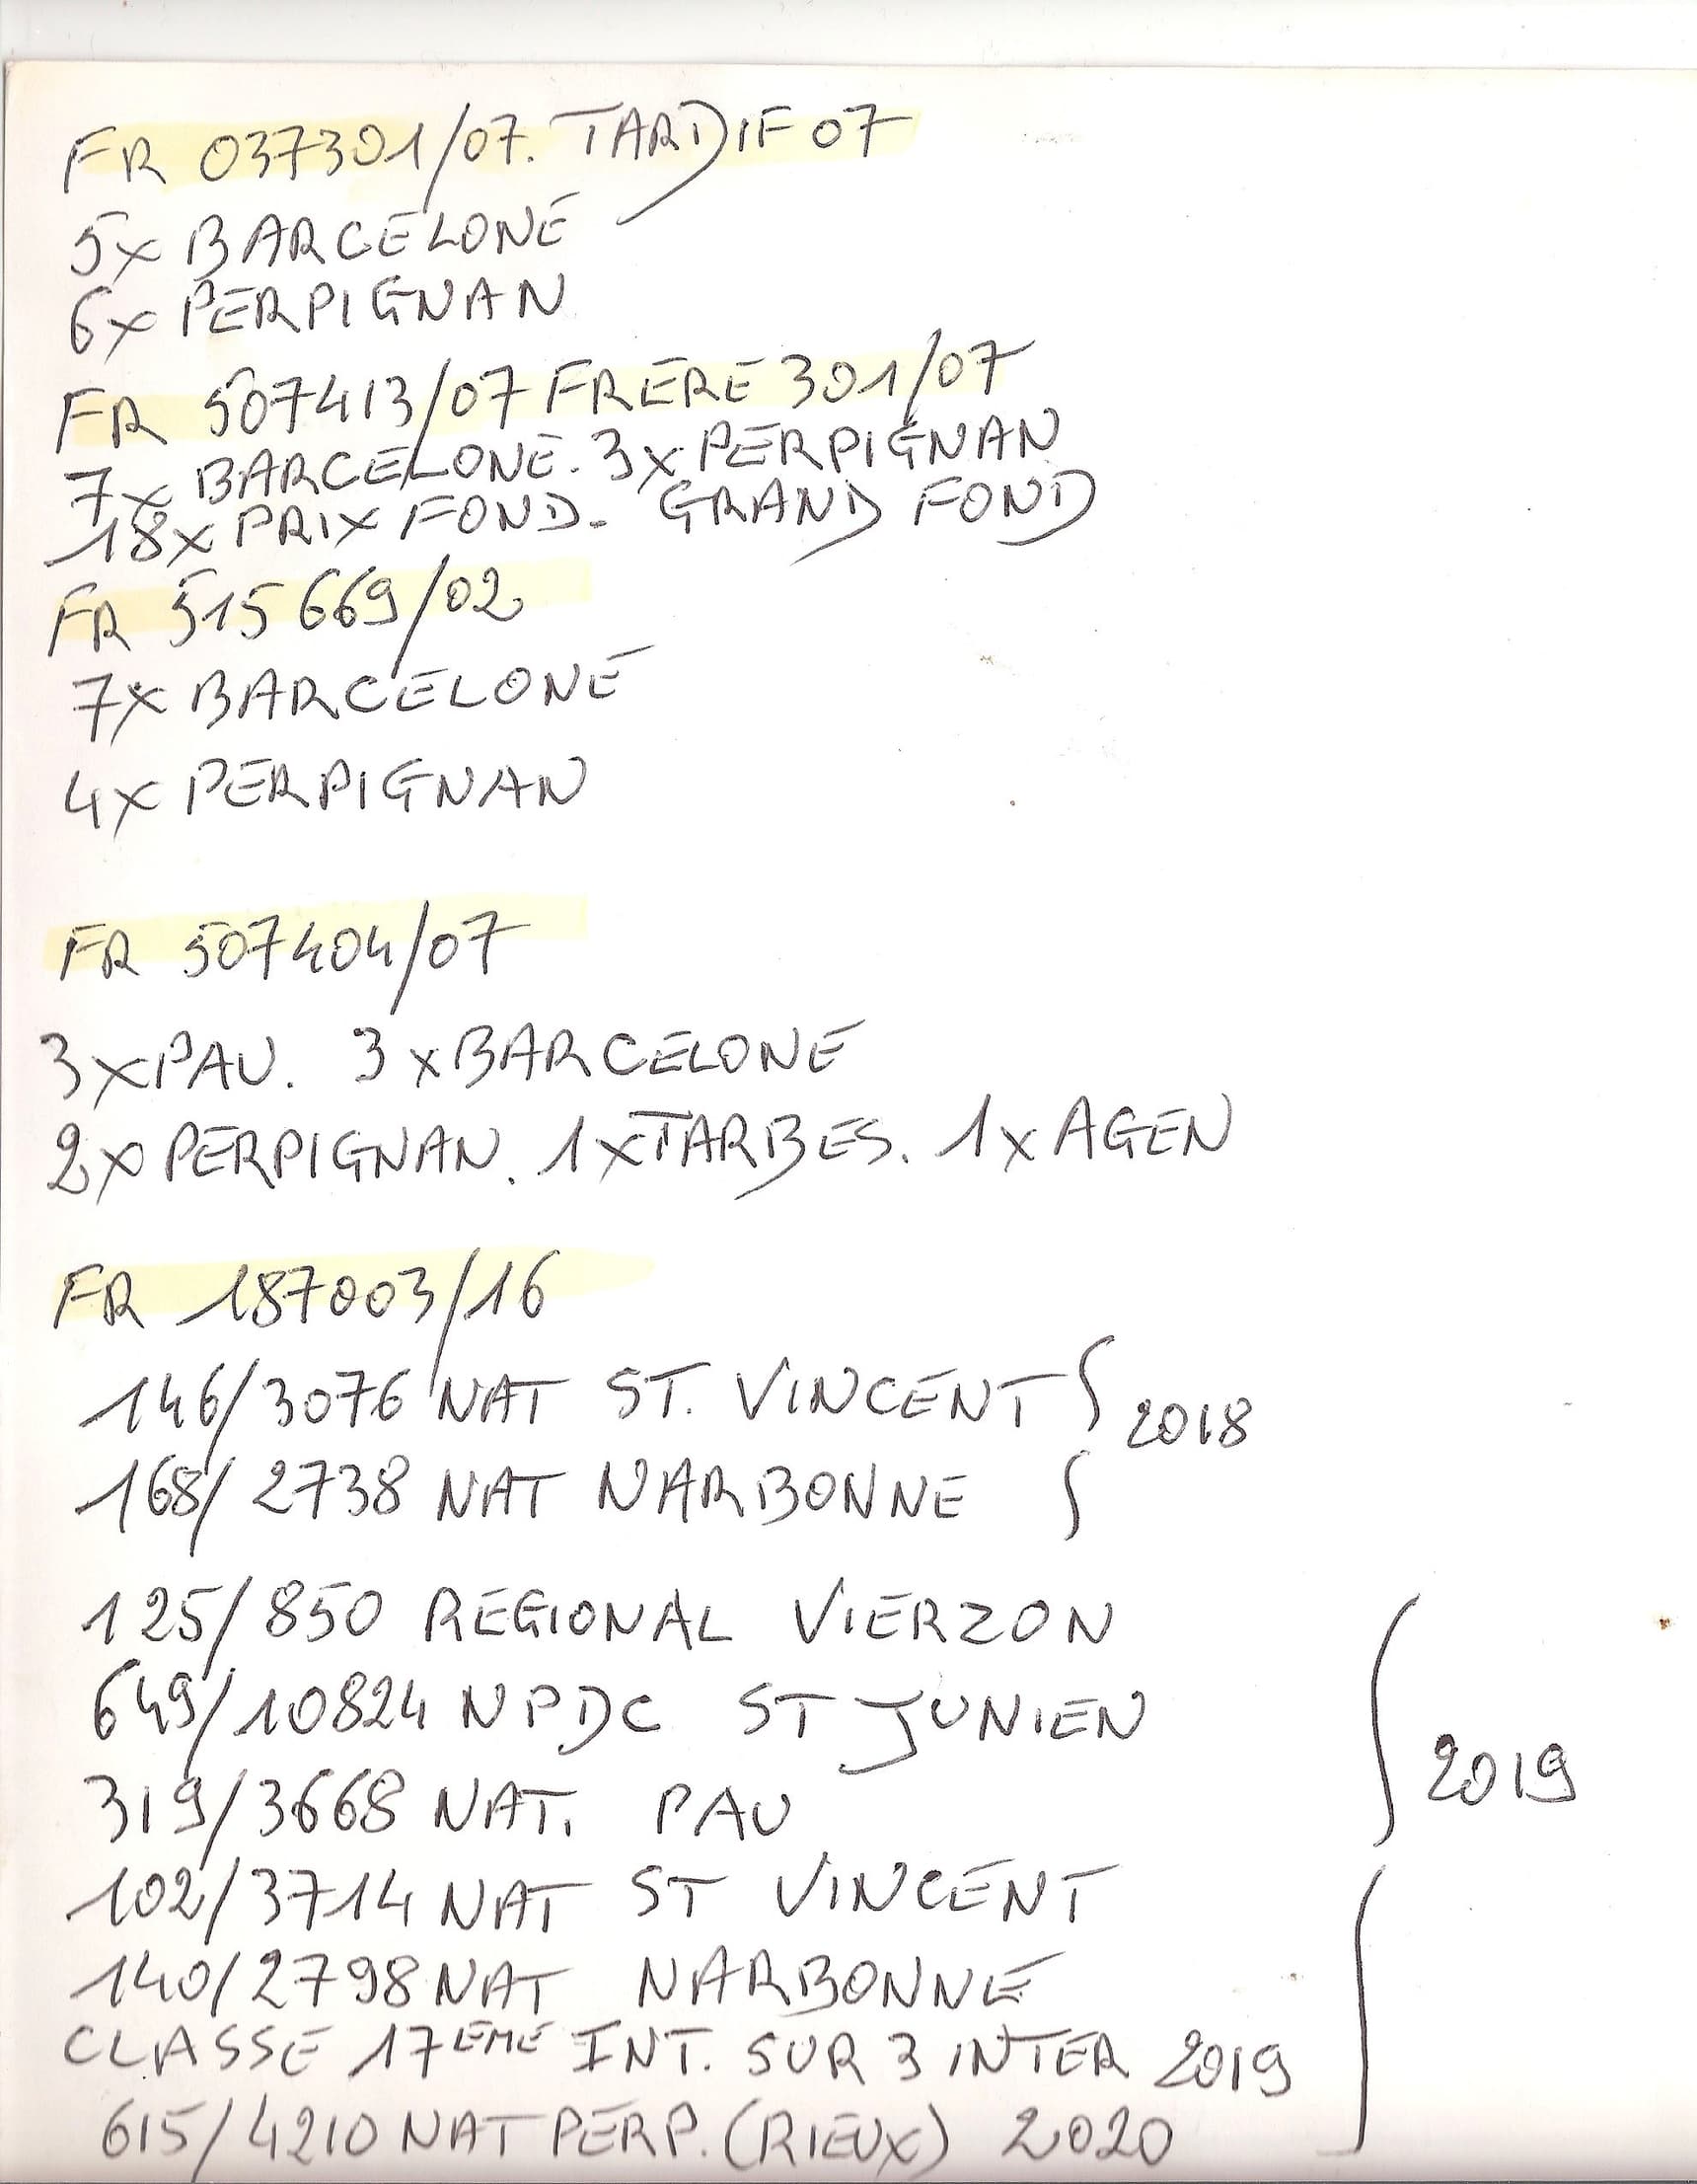 FR 037301/07. TARDIF 07
5x BARCELONE
6x PERPIGNAN
FR 507413/07 FRERE 301/07
7x BARCELONE. 3x PERPIGNAN
18x PRIX FOND. GRAND FOND
FR 515669/02
7x BARCELONE
4x PERPIGNAN
FR 507404/07
3xPAU. 3xBARCELONE
2x PERPIGNAN. 1xTARBES. 1x AGEN
FR 187003/16
146/3076 NAT ST. VINCENT
2018
168/2738 NAT NARBONNE
125/850 REGIONAL VIERZON
649/10824 NPDC ST JUNIEN
2019
319/3668 NAT. PAU
102/3714 NAT ST VINCENT
140/2798 NAT NARBONNE
CLASSE 17EME INT. SUR 3 INTER 2019
615/4210 NAT PERP. (RIEUX) 2020